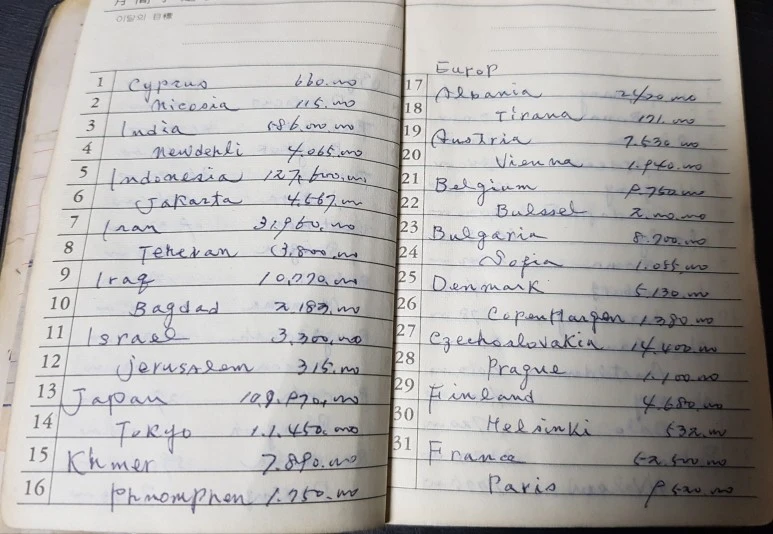 이달의 目標
1 Cyprus 660.000
2 Nicosia 115.000
3 India 586.000.000
4 Newdehli 4.065.000
5 Indonesia 127.600.000
6 Jakarta 4.567.000
7 Iran 31.960.000
8 Teheran 3.800.000
9 Iraq 10.770.000
10 Bagdad 2.183.000
11 Israel 3.300.000
12 Jerusalem 315.000
13 Japan
14 Tokyo 11.450.000
15 Khmer 7.890.000
16 Phnomphen 1.750.000
Europ
17 Albania
18 Tirana 171.000
19 Austria 7.530.000
20 Vienna 1.940.000
21 Belgium 9.750.000
22 Bulssel 2.000.000
23 Bulgaria 8.700.000
24 Sofia 1.055.000
25 Denmark 5.130.000
26 CopenHargen 1.380.000
27 Czechoslovakia 14.400.000
28 Prague 1.100.000
29 Finland 4.680.000
30 Helsinki 532.000
31 France 52.500.000
Paris